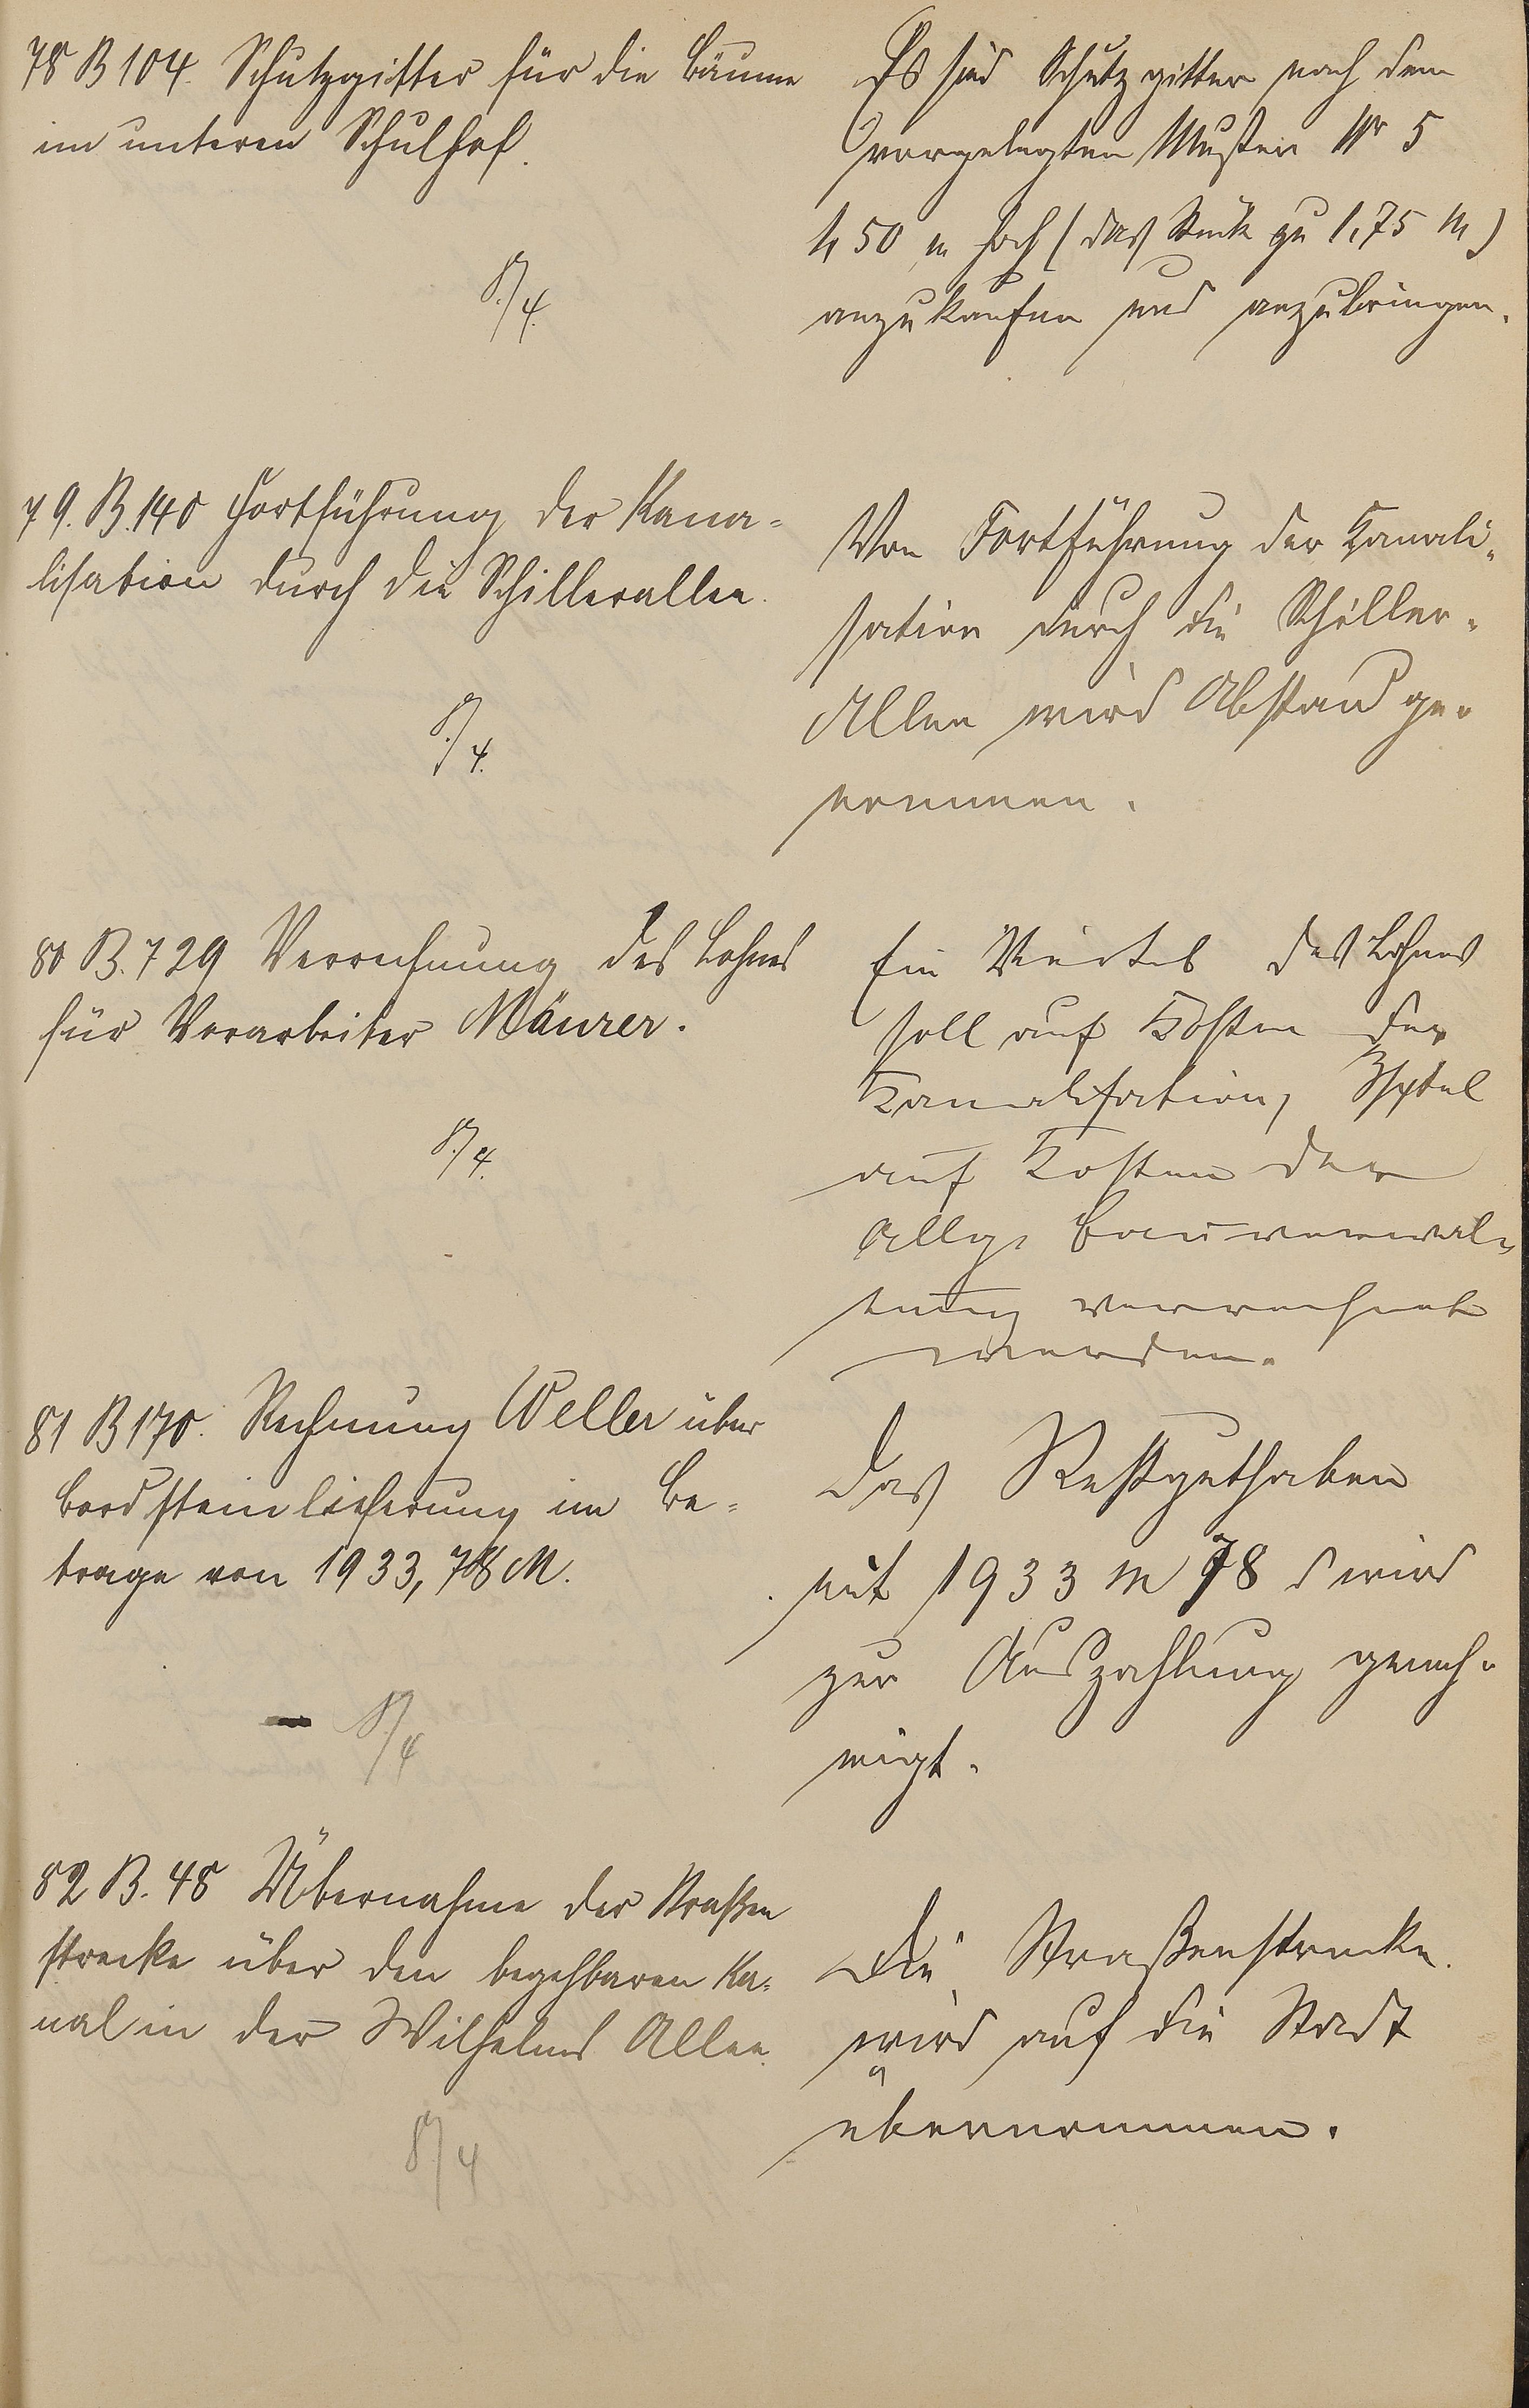 78 B 104. Schutzgitter für die Bäume
im unteren Schulhof.
8./4.
Es sind Schutzgitter nach dem
vorgelegten Muster Nr 5
1,50 m hoch (das Stück zu 1,75 M)
anzukaufen und anzubringen.
79. B. 140 Fortführung der Kana-
lisation durch die Schillerallee.
8./4.
Von Fortführung der Kanali-
sation durch die Schiller-
Allee wird Abstand ge-
nommen.
80 B. 729 Verrechnung des Lohnes
für Vorarbeiter Mäurer.
8./4.
Ein Viertel des Lohnes
soll auf Kosten der
Kanalisation,
auf Kosten der
Allg. Bauverwal-
tung verrechnet
werden.
81 B 170. Rechnung Weller über
Bordsteinlieferung im Be-
trage von 1933,78 M.
8./4
Das Restguthaben
mit 1933 M 78 d wird
zur Auszahlung geneh-
migt.
82 B. 48 Übernahme der Straßen
strecke über den begehbaren Ka-
nal in der Wilhelms Allee.
8./4
Die Straßenstrecke
wird auf die Stadt
übernommen.